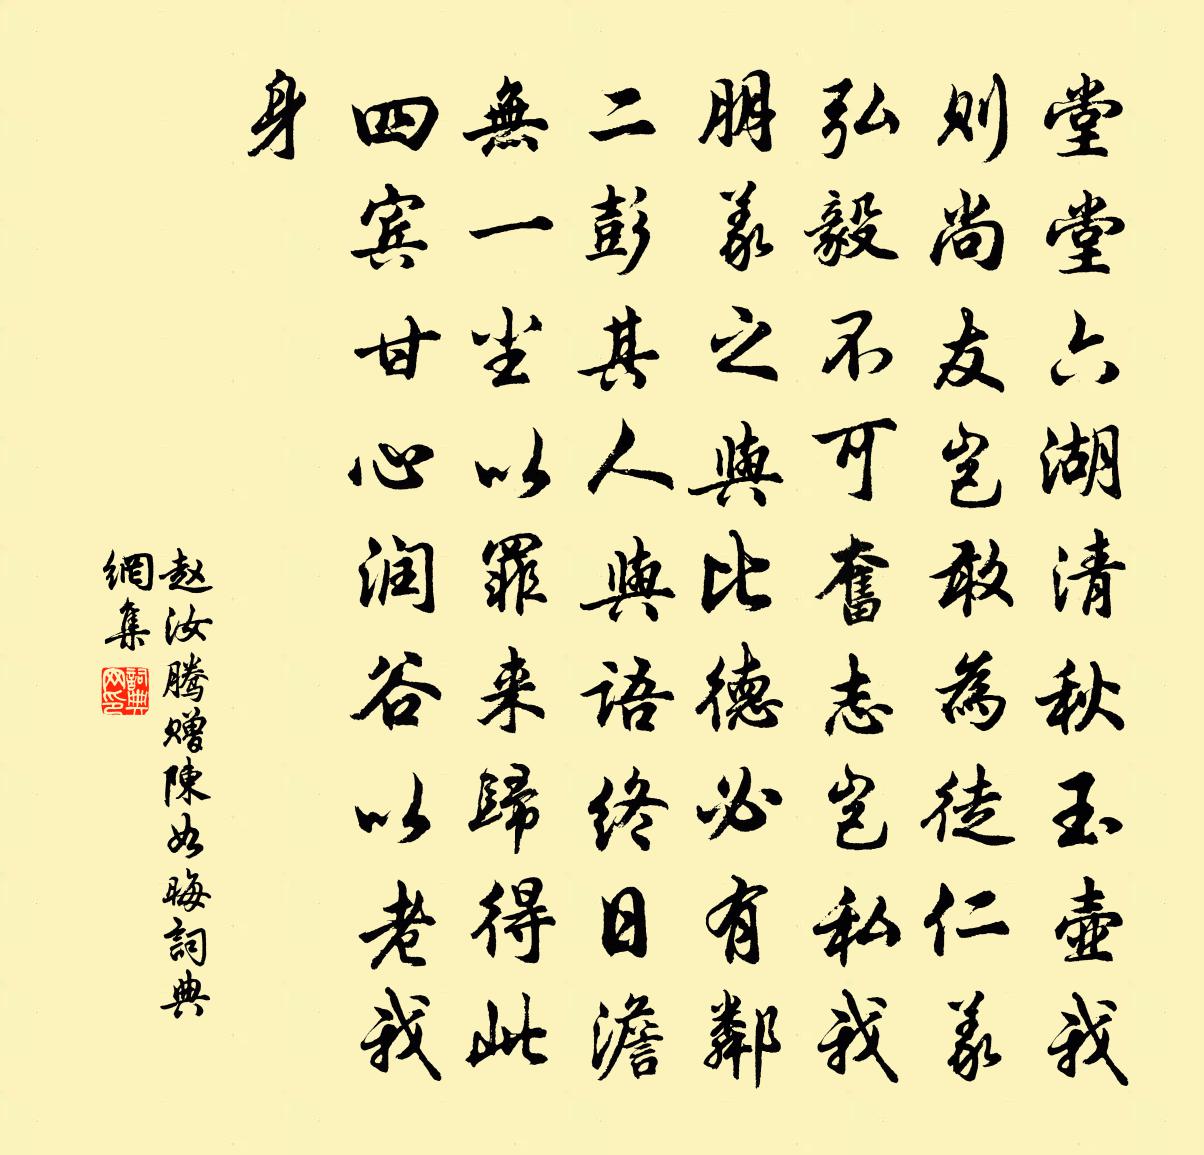 堂堂六湖清秋玉壶我
则尚友岂敢為徒仁義
弘毅不可奮志岂私我
朋義之與比德必有鄰
二彭其人與語终日澹
無一尘以罪来歸得此
四宾甘心润谷以老我
身
赵汝腾赠陳如晦詞典
網集
詞典网印